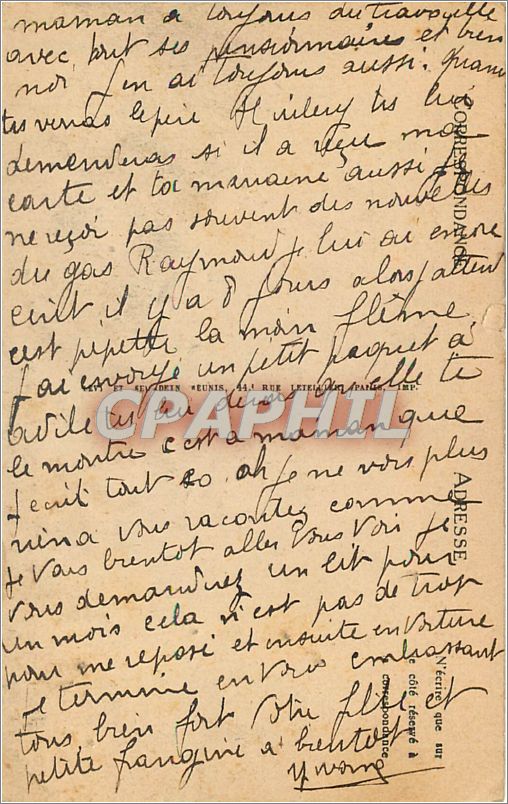 maman a toujours du travaille
avec tout ses pensionnaires et bien
moi j'en ai toujours aussi. quand
tu verras le père tu lui
demenderas si il a reçu ma
carte et ta marraine aussi je
ne reçoi pas souvent des nouvelles
du gas Raymond je lui ai encore
écrit il y a 8 jours alors j'attend
cest pipette la main flème.
j'ai envoyé un petit paquet à
tu lui diras qu'elle te
le montre c'est a maman que
j'ecrit tout so. ah je ne vois plus
rien a vous raconter comme
je vais bientot aller vous voir je
vous demanderez un lit pour
un mois cela n'est pas de trop
pour me reposé et ensuite en voiture
je termine en vous embrassant
tous bien fort votre fille et
petite frangine a bientot
Yvonne
CORRESPONDANCE
ADRESSE
N'écrire que sur
le côté réservé à
correspondance
REUNIS, 44, RUE LETELLIER, PARIS, IMP.
CPAPHIL